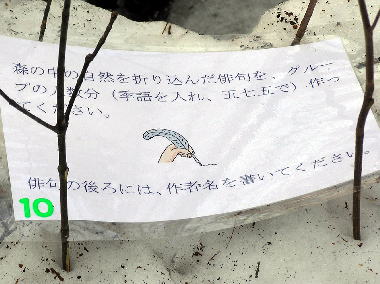 森の中の自然を折り込んだ俳句を、グルー
プの人数分（季語を入れ、五七五で）作っ
てください。
俳句の後ろには、作者名を書いてください。
10